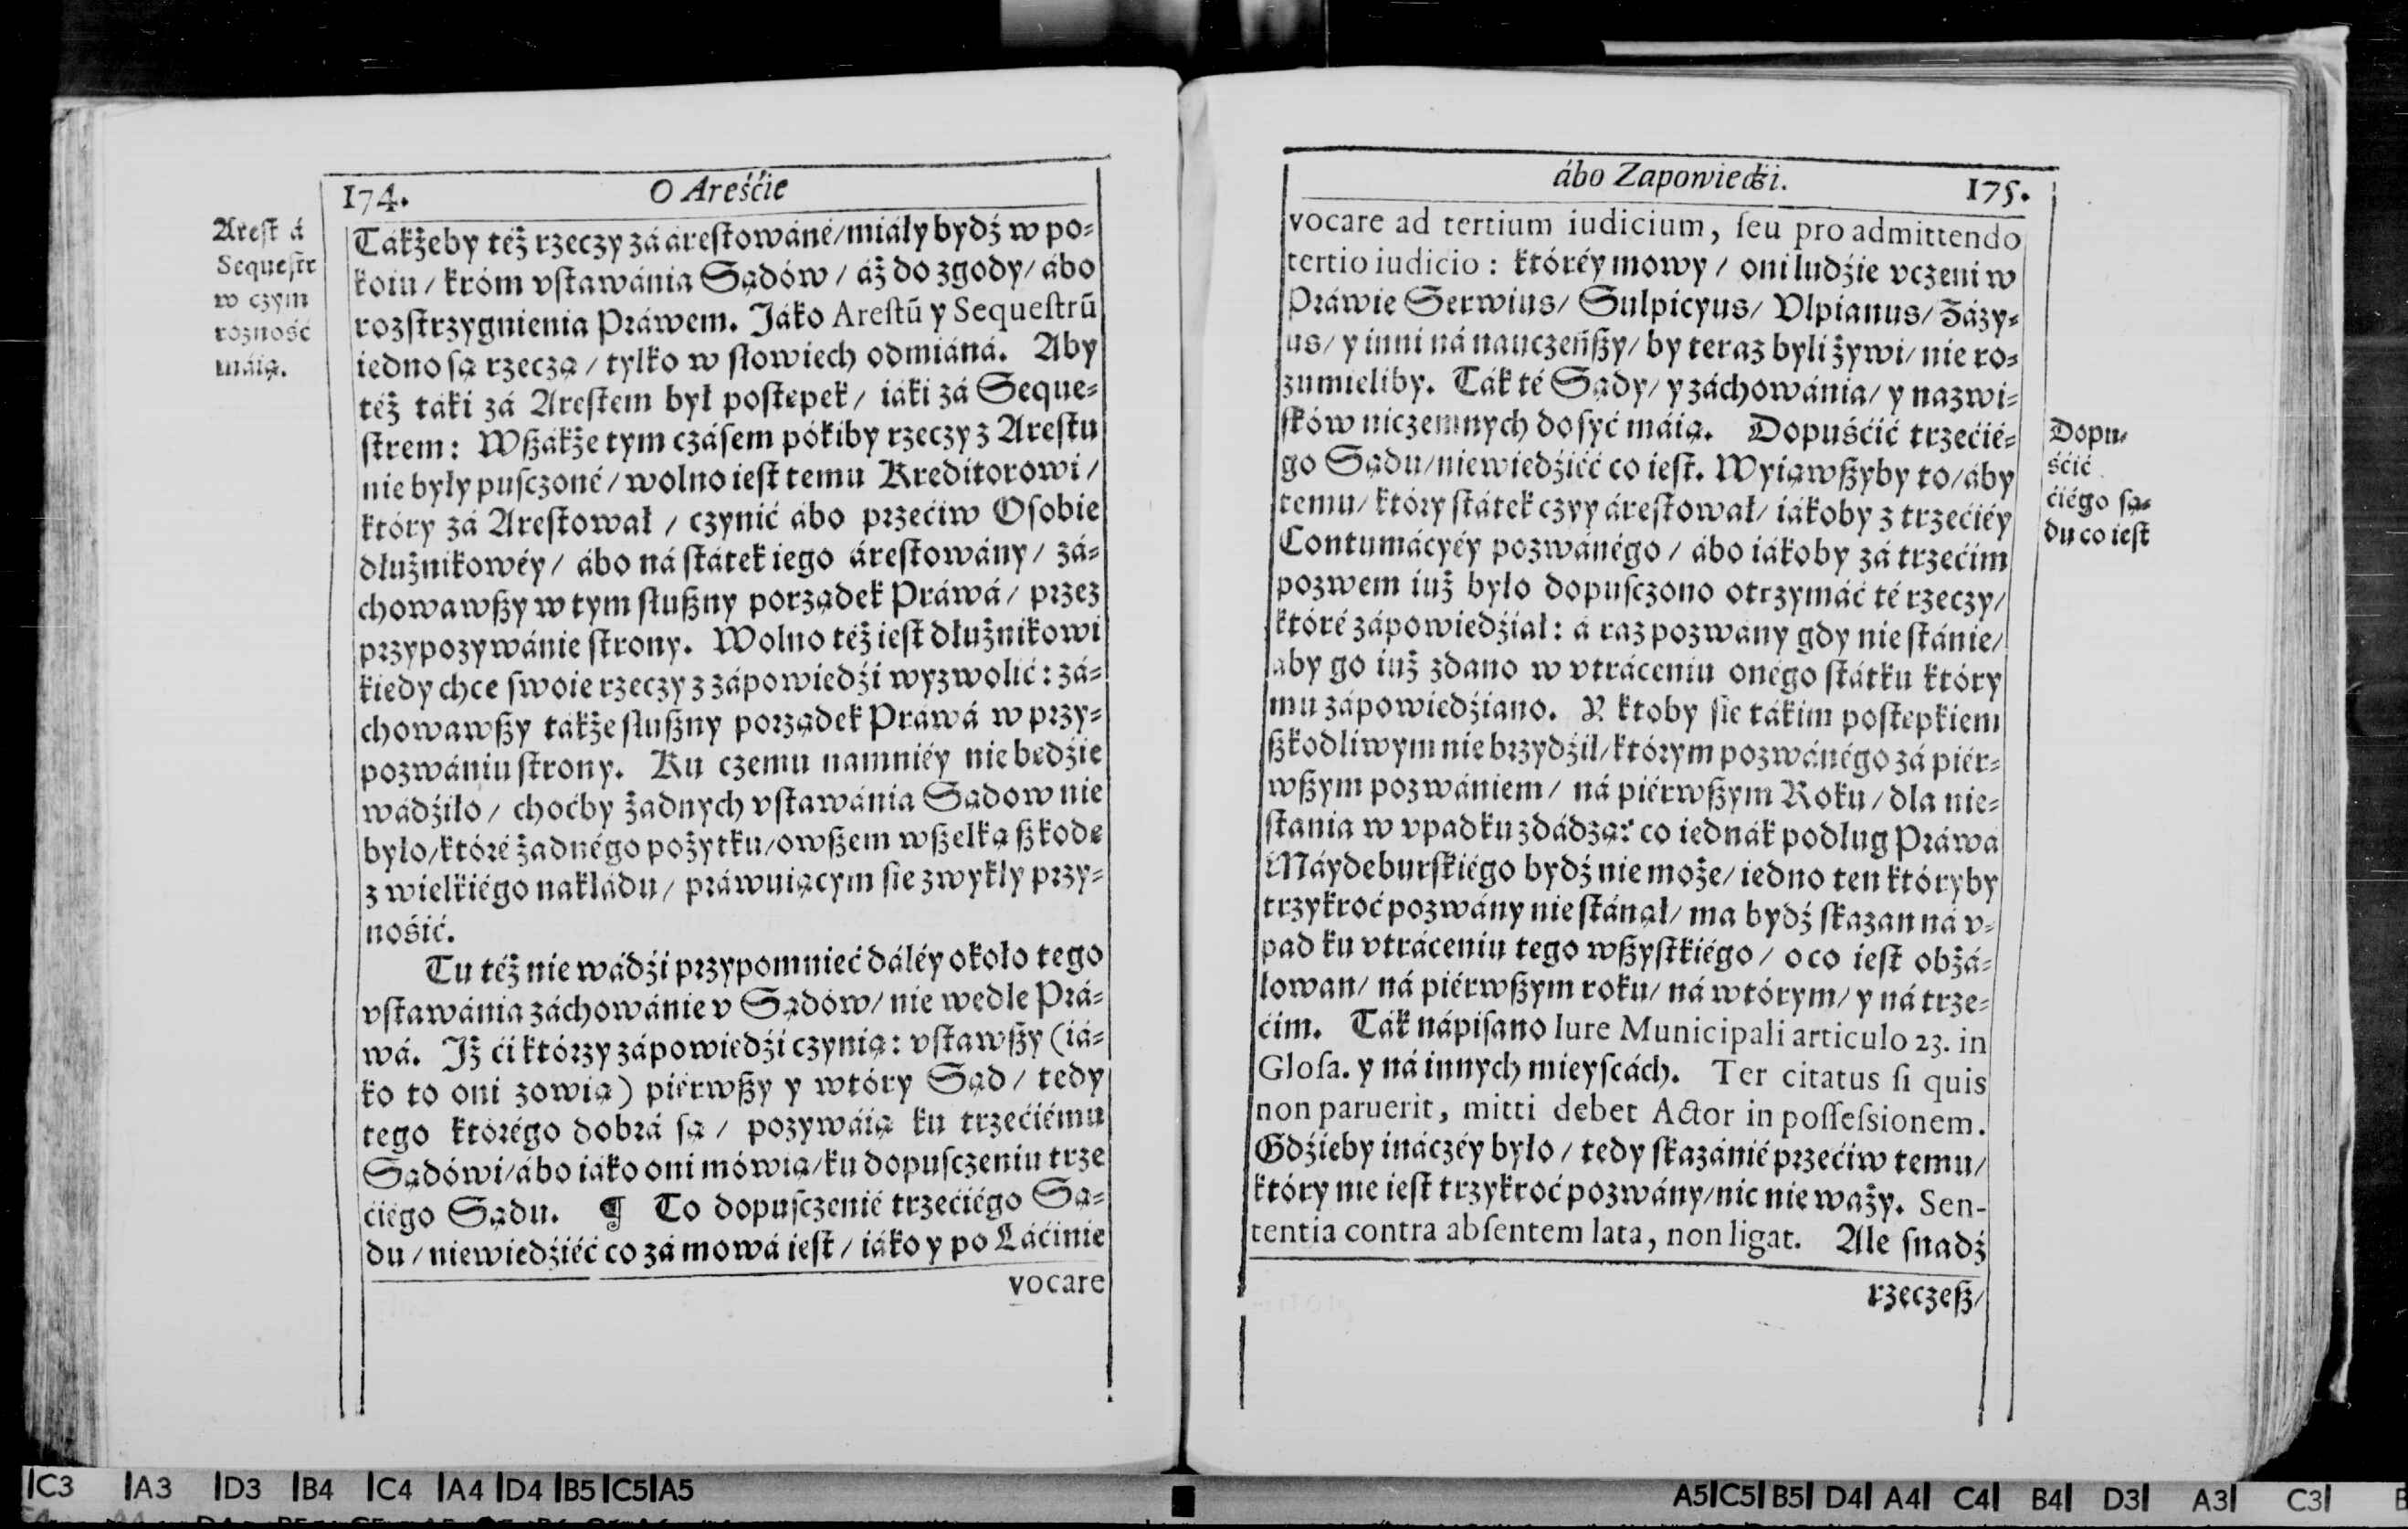 174.
O Areśćie
Arest á
Sequestr
w czym
rózność
máią.
Tákżeby też rzeczy zá árestowáné/ miáły bydź w po-
koiu / króm vstawánia Sądów / áż do zgody/ ábo
rozstrzygnienia Práwem. Jáko Arestū y Sequestrū
iedno są rzeczą / tylko w słowiech odmiáná. Aby
też táki zá Arestem był postepek / iáki zá Seque-
strem: Wszákże tym czásem pókiby rzeczy z Arestu
nie były pusczoné / wolno iest temu Kreditorowi /
który zá Arestował / czynić ábo przećiw Osobie
dłużnikowéy / ábo ná státek iego árestowány / zá-
chowawszy w tym słuszny porządek Práwá / przez
przypozywánie strony. Wolno też iest dłużnikowi
kiedy chce swoie rzeczy z zápowiedźi wyzwolić: zá-
chowawszy tákże słuszny porządek Práwá w przy-
pozwániu strony. Ku czemu namniéy nie bedźie
wádźiło / choćby żadnych vstawánia Sądow nie
było/ któré żadnégo pożytku/ owszem wszelką szkode
z wielkiégo nakłádu / práwuiącym sie zwykły przy-
nośić.
Tu też nie wádźi przypomnieć dáléy około tego
vstawánia záchowánie v Sądów/ nie wedle Prá-
wá. Jż ći którzy zápowiedźi czynią: vstawszy (iá-
ko to oni zowią) piérwszy y wtóry Sąd / tedy
tego którégo dobrá są / pozywáią ku trzećiému
Sądówi/ ábo iáko oni mówią/ ku dopusczeniu trze
ćiégo Sądu. ¶ To dopusczenié trzećiégo Są-
du / niewiedźiéć co zá mowá iest / iáko y po Łáćinie
vocare
ábo Zapowiedźi.
175.
vocare ad tertium iudicium, seu pro admittendo
tertio iudicio : któréy mowy / oni ludźie vczeni w
Práwie Serwius/ Sulpicyus/ Vlpianus/ Zázy-
us/ y inni ná nauczeńszy/ by teraz byli żywi/ nie ro-
zumieliby. Ták té Sądy/ y záchowánia/ y nazwi-
sków niczemnych dosyć máią. Dopuśćić trzećié-
go Sądu/ niewiedźiéć co iest. Wyiąwszyby to/ áby
temu/ który státek czyy árestował/ iákoby z trzećiéy
Contumácyéy pozwánégo / ábo iákoby zá trzećim
pozwem iuż było dopusczono otrzymáć té rzeczy/
któré zápowiedźiał: á raz pozwány gdy nie stánie/
aby go iuż zdano w vtráceniu onégo státku który
mu zápowiedźiano. Y ktoby sie tákim postepkiem
szkodliwym nie brzydźił/ którym pozwánégo zá piér-
wszym pozwániem/ ná piérwszym Roku / dla nie-
stania w vpadku zdádzą: co iednák podług Práwa
Máydeburskiégo bydź nie może/ iedno ten któryby
trzykroć pozwány nie stánął/ ma bydź skazan ná v-
pad ku vtráceniu tego wszystkiégo / o co iest obżá-
łowan/ ná piérwszym roku/ ná wtórym/ y ná trze-
ćim. Ták nápisano Iure Municipali articulo 23. in
Glosa. y ná innych mieyscách. Ter citatus si quis
non paruerit, mitti debet Actor in possessionem.
Gdźieby ináczéy było / tedy skazánié przećiw temu/
który nie iest trzykroć pozwány/ nic nie waży. Sen-
tentia contra absentem lata, non ligat. Ale snadź
rzeczesz/
Dopu-
śćić
ćiégo są-
du co iest